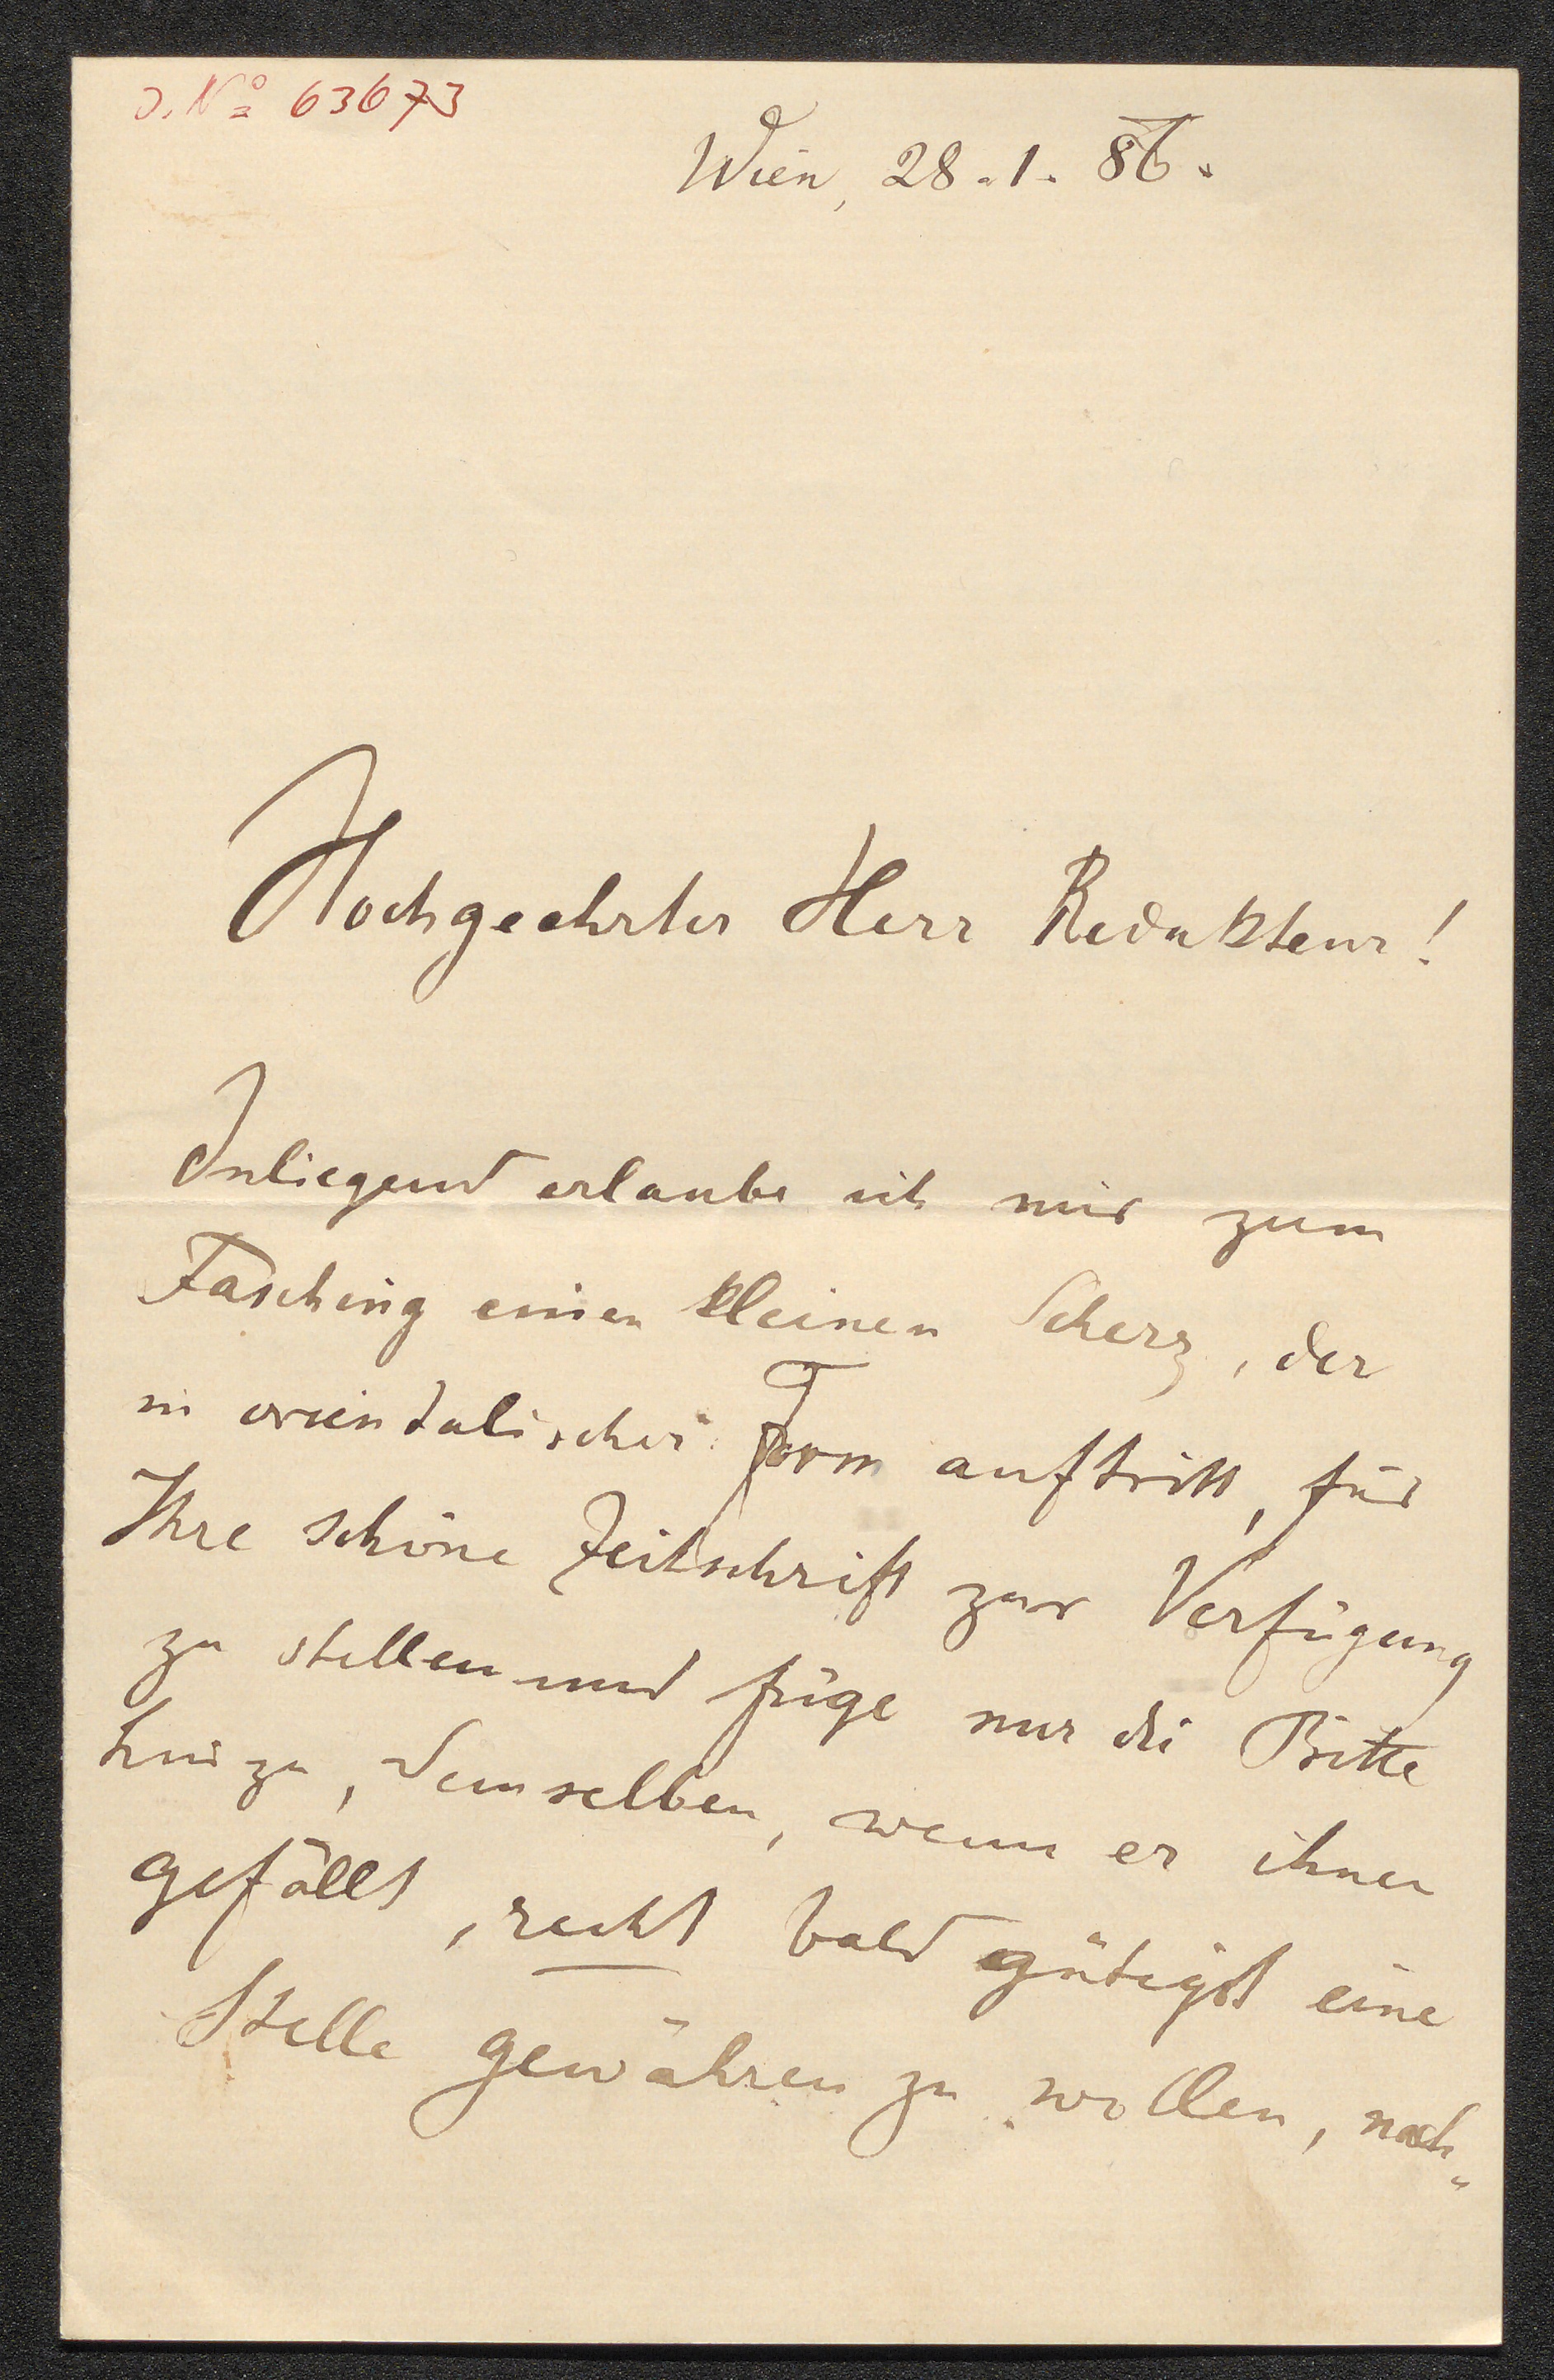 J. No 63673
Wien, 28. 1. 86.
Hochgeehrter Herr Redakteur!
Inliegend erlaube ich mir zum
Fasching einen kleinen Scherz, der
in orientalischer Form auftritt, für
Ihre schöne Zeitschrift zur Verfügung
zu stellen und füge nur die Bitte
hinzu, demselben, wenn er ihnen
gefällt, recht bald gütigst eine
Stelle gewähren zu wollen, nach-